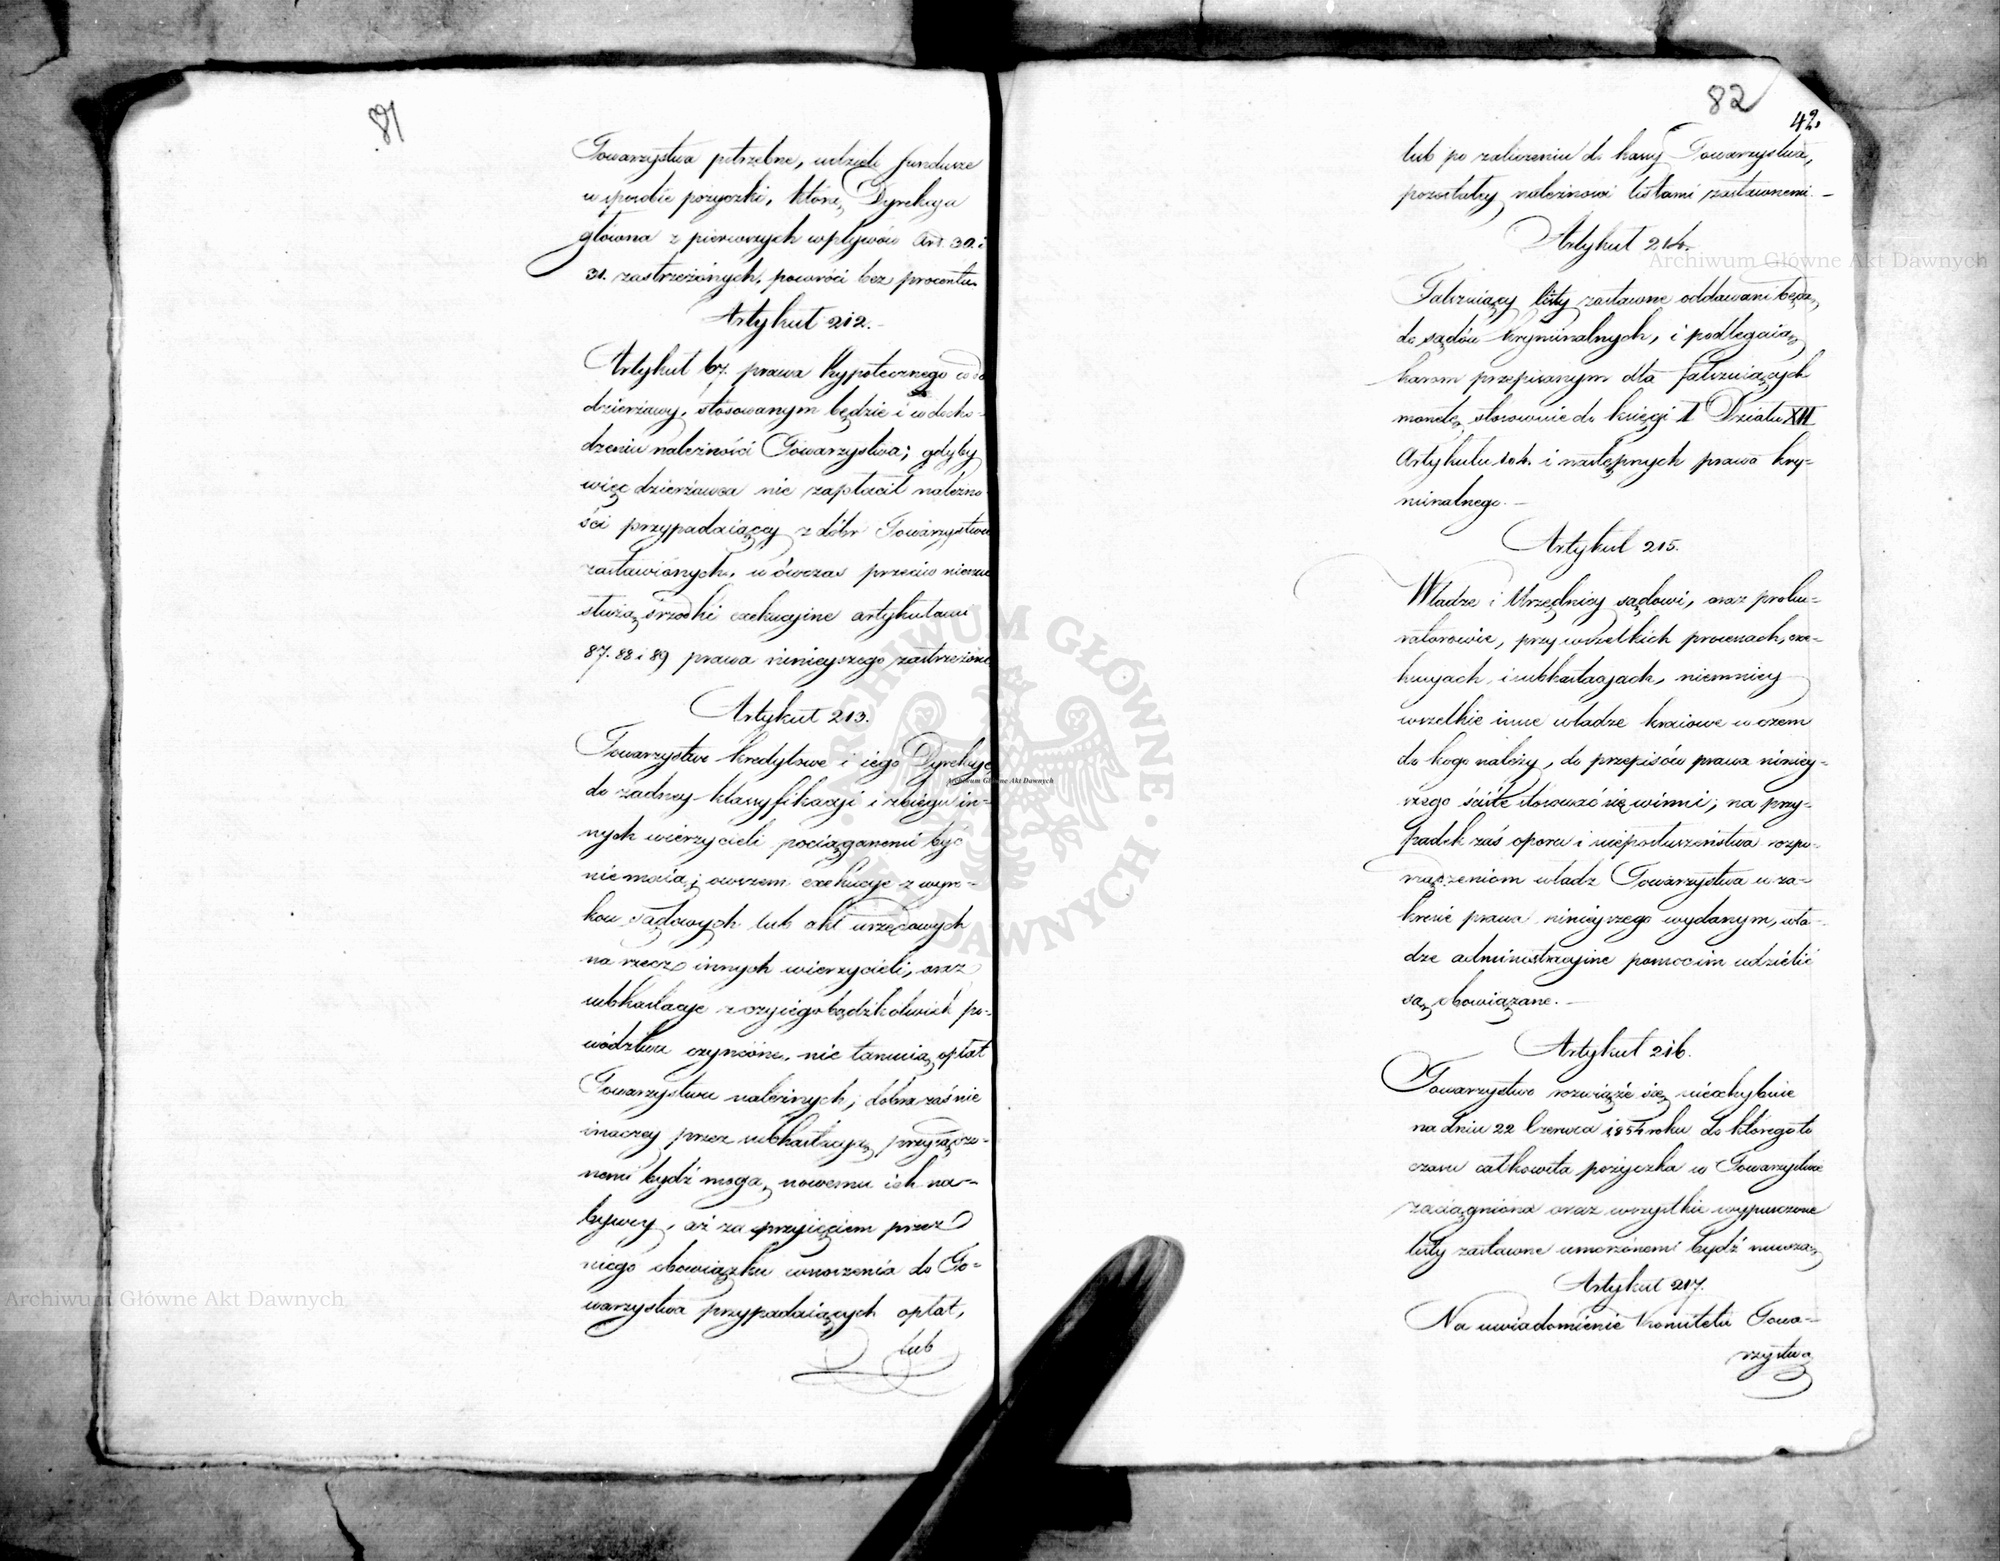 81
Towarzystwa potrzebne, udzieli fundusze
w sposobie pożyczki, którą Dyrekcya
główna z pierwszych wpływów Art. 30. i
31. zastrzeżonych, powróci bez procentu.
Artykuł 212.
Artykuł 67. prawa Hypotecznego co do
dzierżawy, stosowanym będzie i w docho-
dzeniu należności Towarzystwa; gdyby
więc dzierżawca nie zapłacił należno-
ści przypadaiącey z dóbr Towarzystwu
zastawionych, w ówczas przeciw niemu
służą środki exekucyjne artykułami
87. 88 i 89 prawa ninieyszego zastrzeżone
Artykuł 213.
Towarzystwo kredytowe i iego Dyrekcye
do żadney klassyfikacyi i zbiegu in-
nych wierzycieli pociąganemi być
nie maią; owszem exekucye z wyro-
ków sądowych lub akt urzędowych
na rzecz innych wierzycieli, oraz
subhastacye z czyiegobądźkolwiek po-
wództwa czynione, nie tamuią opłat
Towarzystwu należnych; dobra zaś nie
inaczey przez subhastacyą przysądzo-
nemi bydź mogą nowemu ich na-
bywcy, aż za przyięciem przez
niego obowiązku wnoszenia do To-
warzystwa przypadaiących opłat,
lub
82
42.
lub po zaliczeniu do kassy Towarzystwa,
pozostałey należności listami zastawnemi. -
Artykuł 214.
Fałszuiący listy zastawne oddawani będą
do sądów kryminalnych, i podlegaią
karom przepisanym dla fałszuiących
monetę, stosownie do księgi I Działu XII
Artykułu 104. i następnych prawa kry-
minalnego. -
Artykuł 215.
Władze i Urzędnicy sądowi, oraz proku-
ratorowie, przy wszelkich processach, exe-
kucyach, i subhastacyach, niemniey
wszelkie inne władze kraiowe w czem
do kogo należy, do przepisów prawa niniey-
szego ściśle stosować się winni; na przy-
padek zaś oporu i nieposłuszeństwa rozpo-
rządzeniom władz Towarzystwa w za-
kresie prawa ninieyszego wydanym, wła-
dze administracyjne pomocim udzielić
są obowiązane. -
Artykuł 216.
Towarzystwo rozwiąże się nieochybnie
na dniu 22 Czerwca 1854 roku do którego to
czasu całkowita pożyczka w Towarzystwie
zaciągniona oraz wszystkie wypuszczone
listy zastawne umorzonemi bydź muszą
Artykuł 217.
Na uwiadomienie Komitetu Towa-
rzystwa
Archiwum Główne Akt Dawnych
Archiwum Główne Akt Dawnych
Archiwum Główne Akt Dawnych
ARCHIWUM GŁÓWNE AKT DAWNYCH